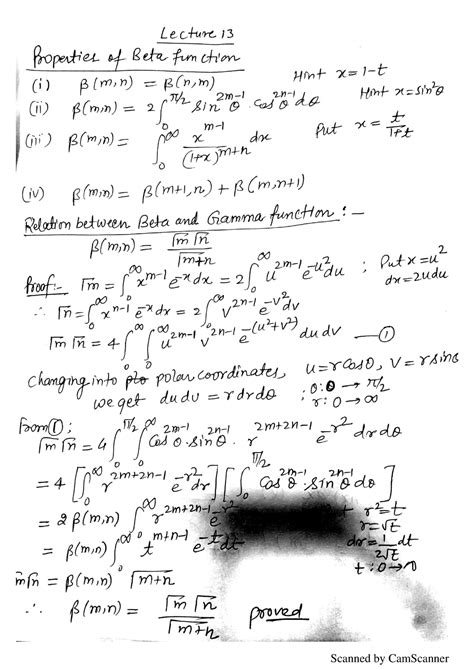 Lecture 13
Properties of Beta function
(i) β(m,n) = β(n,m) Hint x=1-t
(ii) β(m,n) = 2∫₀^{π/2} sin^{2m-1}θ · cos^{2n-1}θ dθ Hint x=sin²θ
(iii) β(m,n) = ∫₀^∞ x^{m-1}/(1+x)^{m+n} dx Put x = t/(1+t)
(iv) β(m,n) = β(m+1,n) + β(m,n+1)
Relation between Beta and Gamma function :-
β(m,n) = Γm Γn / Γm+n
Proof:- Γm = ∫₀^∞ x^{m-1} e^{-x} dx = 2∫₀^∞ u^{2m-1} e^{-u²} du ; Put x=u²
dx=2udu
∴ Γn = ∫₀^∞ x^{n-1} e^{-x} dx = 2∫₀^∞ v^{2n-1} e^{-v²} dv
Γm Γn = 4∫₀^∞ ∫₀^∞ u^{2m-1} v^{2n-1} e^{-(u²+v²)} du dv —①
Changing into polar coordinates, u=rcosθ, v=rsinθ
we get du dv = r dr dθ ; θ:0→π/2
; r:0→∞
From ①;
Γm Γn = 4∫₀^{π/2} ∫₀^∞ cos^{2m-1}θ · sin^{2n-1}θ · r^{2m+2n-1} e^{-r²} dr dθ
= 4 [∫₀^∞ r^{2m+2n-1} e^{-r²} dr] [∫₀^{π/2} cos^{2m-1}θ · sin^{2n-1}θ dθ]
= 2β(m,n) ∫₀^∞ r^{2m+2n-1} e^{-r²} r²=t
r=√t
= β(m,n) ∫₀^∞ t^{m+n-1} e^{-t} dt dr = 1/(2√t) dt
t:0→∞
Γm Γn = β(m,n) Γm+n
∴ β(m,n) = Γm Γn / Γm+n proved
Scanned by CamScanner